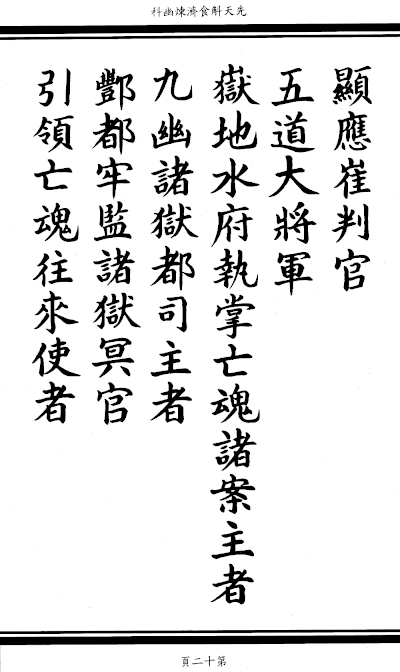 先天斛食濟煉幽科
顯應崔判官
五道大將軍
嶽地水府執掌亡魂諸案主者
九幽諸獄都司主者
酆都牢監諸獄冥官
引領亡魂往來使者
第十二頁